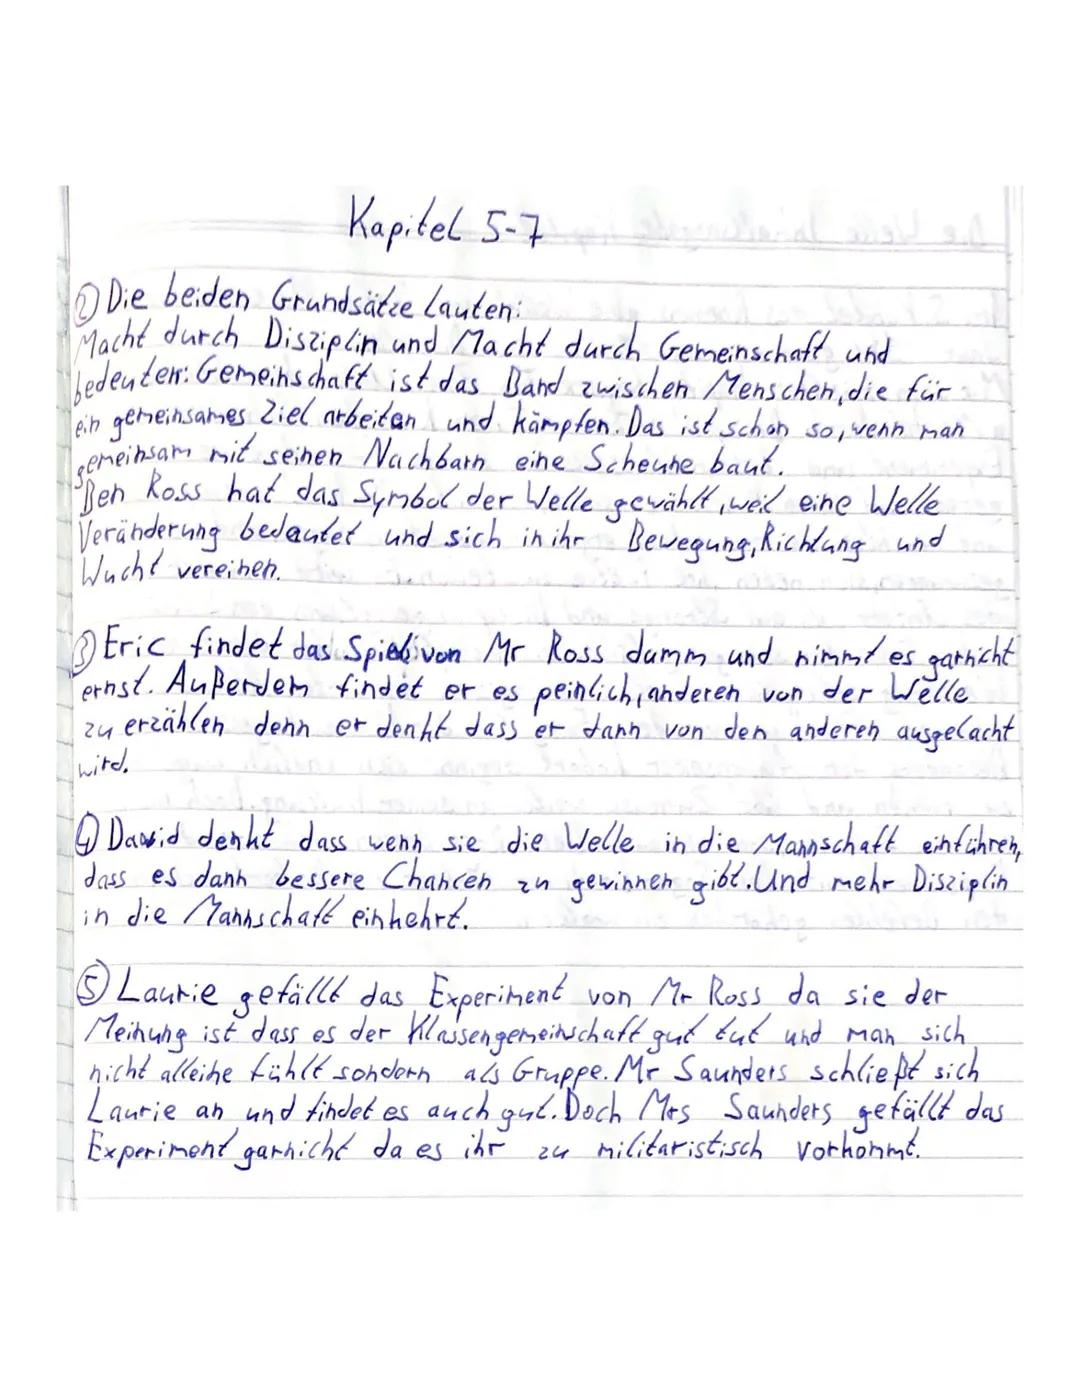 Kapitel 5-7
② Die beiden Grundsätze lauten:
Macht durch Disziplin und Macht durch Gemeinschaft und
bedeuten: Gemeinschaft ist das Band zwischen Menschen, die für
ein gemeinsames Ziel arbeiten und kämpfen. Das ist schon so, wenn man
gemeinsam mit seinen Nachbarn eine Scheune baut.
Ben Ross hat das Symbol der Welle gewählt, weil eine Welle
Veränderung bedeutet und sich in ihr Bewegung, Richtung und
Wucht vereinen.
③ Eric findet das Spiel von Mr Ross dumm und nimmt es garnicht
ernst. Außerdem findet er es peinlich, anderen von der Welle
zu erzählen denn er denkt dass er dann von den anderen ausgelacht
wird.
④ David denkt dass wenn sie die Welle in die Mannschaft einführen,
dass es dann bessere Chancen zu gewinnen gibt. Und mehr Disziplin
in die Mannschaft einkehrt.
⑤ Laurie gefällt das Experiment von Mr Ross da sie der
Meinung ist dass es der Klassengemeinschaft gut tut und man sich
nicht alleine fühlt sondern als Gruppe. Mr Saunders schließt sich
Laurie an und findet es auch gut. Doch Mrs Saunders gefällt das
Experiment garnicht da es ihr zu militaristisch vorkommt.